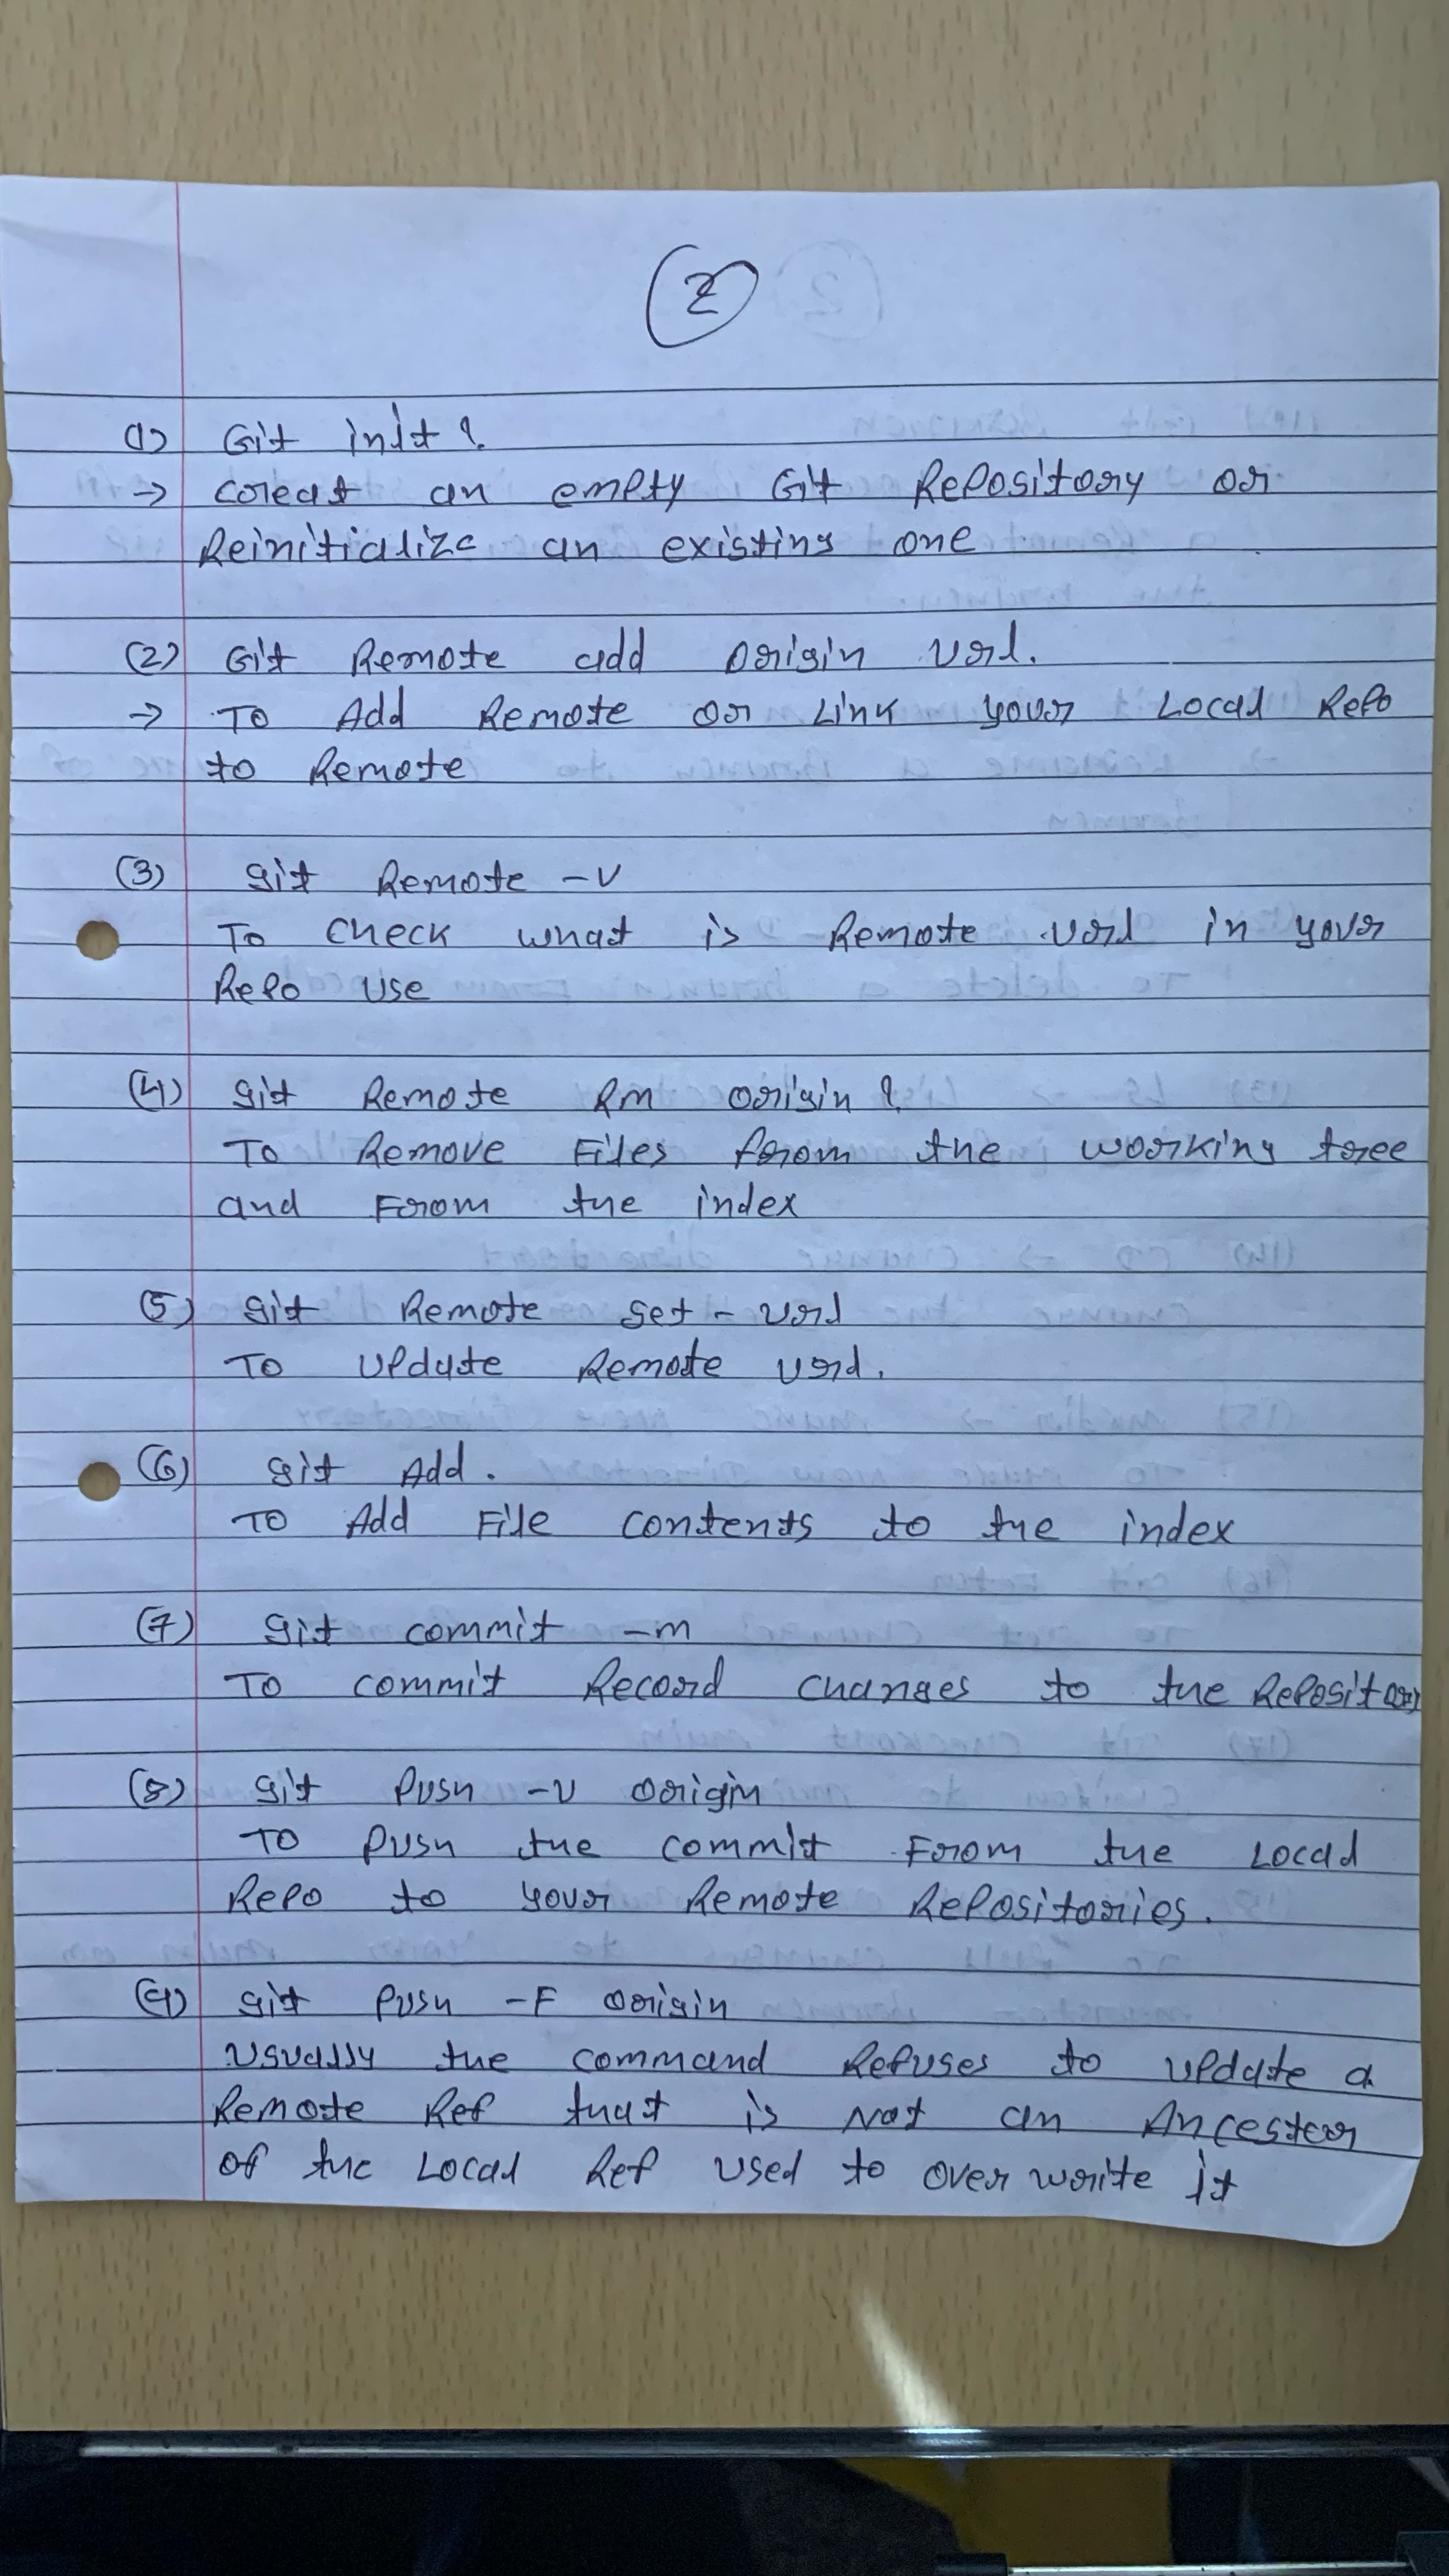 2
(1) Git init ?
→ Creat an empty Git Repository or
Reinitialize an existing one
(2) Git Remote add origin url.
→ To Add Remote or Link your Local Repo
to Remote
(3) git Remote -v
To check what is Remote url in your
Repo use
(4) git Remote Rm origin ?
To Remove Files from the working tree
and From the index
(5) git Remote set-url
To Update Remote url.
(6) git Add .
To Add File contents to the index
(7) git commit -m
To commit Record changes to the Repository
(8) git Push -u origin
To Push the commit From the Local
Repo to your Remote Repositories.
(9) git Push -F origin
Usually the command Refuses to update a
Remote Ref that is not an Ancester
of the Local Ref used to over write it